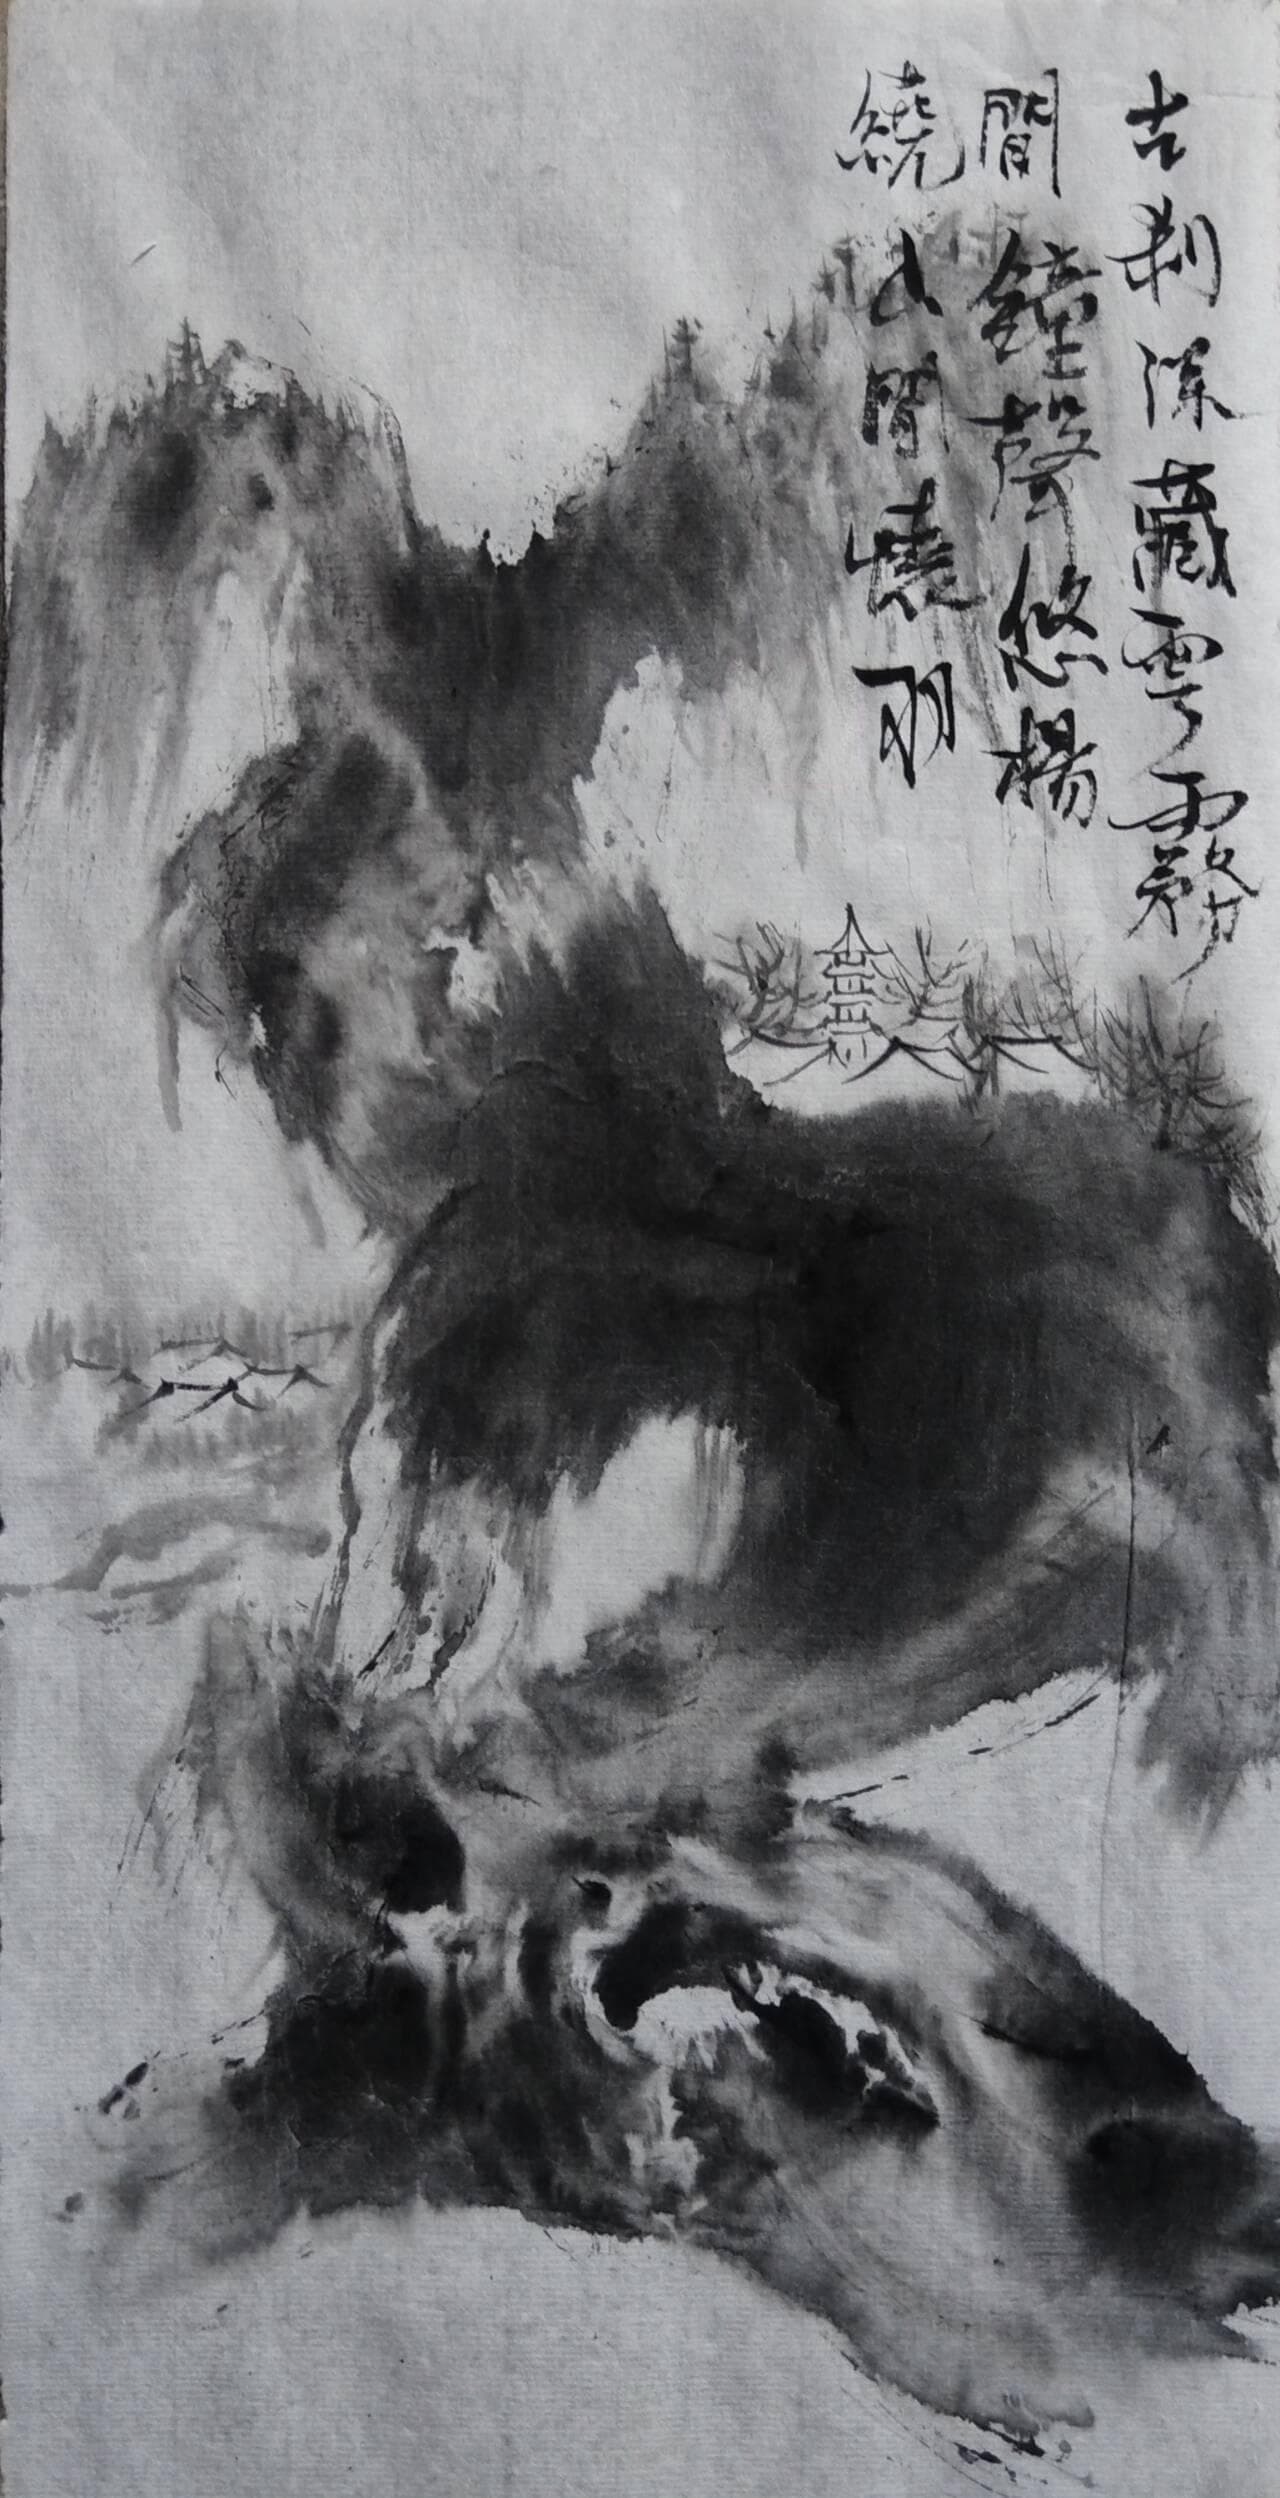 古刹深藏雲霧
間鐘聲悠楊
繞山間 羽